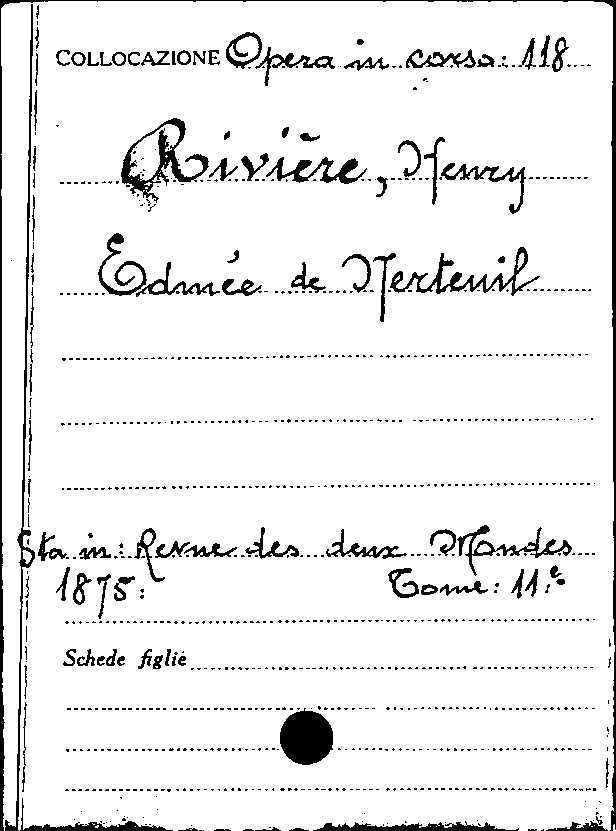 COLLOCAZIONE Opera in corso: 118
Rivière, Henry
Edmée de Nerteuil
Sta in: Revue des deux Mondes
1875: Tome: 11.e
Schede figlie